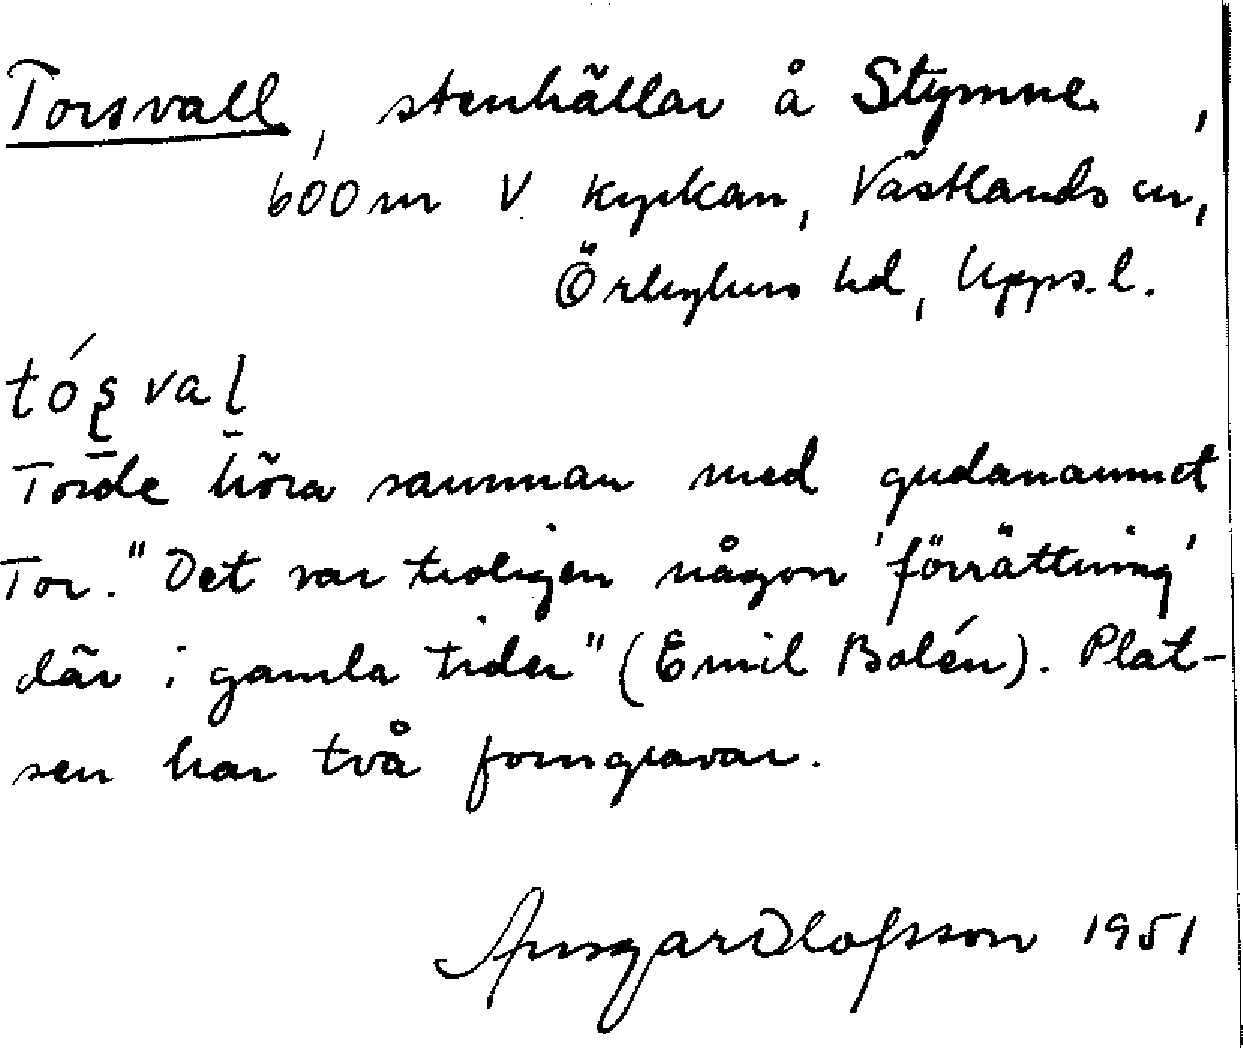 Torsvall, stenhällar å Stymne,
600 m V kyrkan, Västlands sn,
Örbyhus hd, Upps. l.
tóʂval
Torde höra samman med gudanamnet
Tor. "Det var troligen någon 'förrättning'
där i gamla tider" (Emil Bolén). Plat-
sen har två forngravar.
Ansgar Olofsson 1951